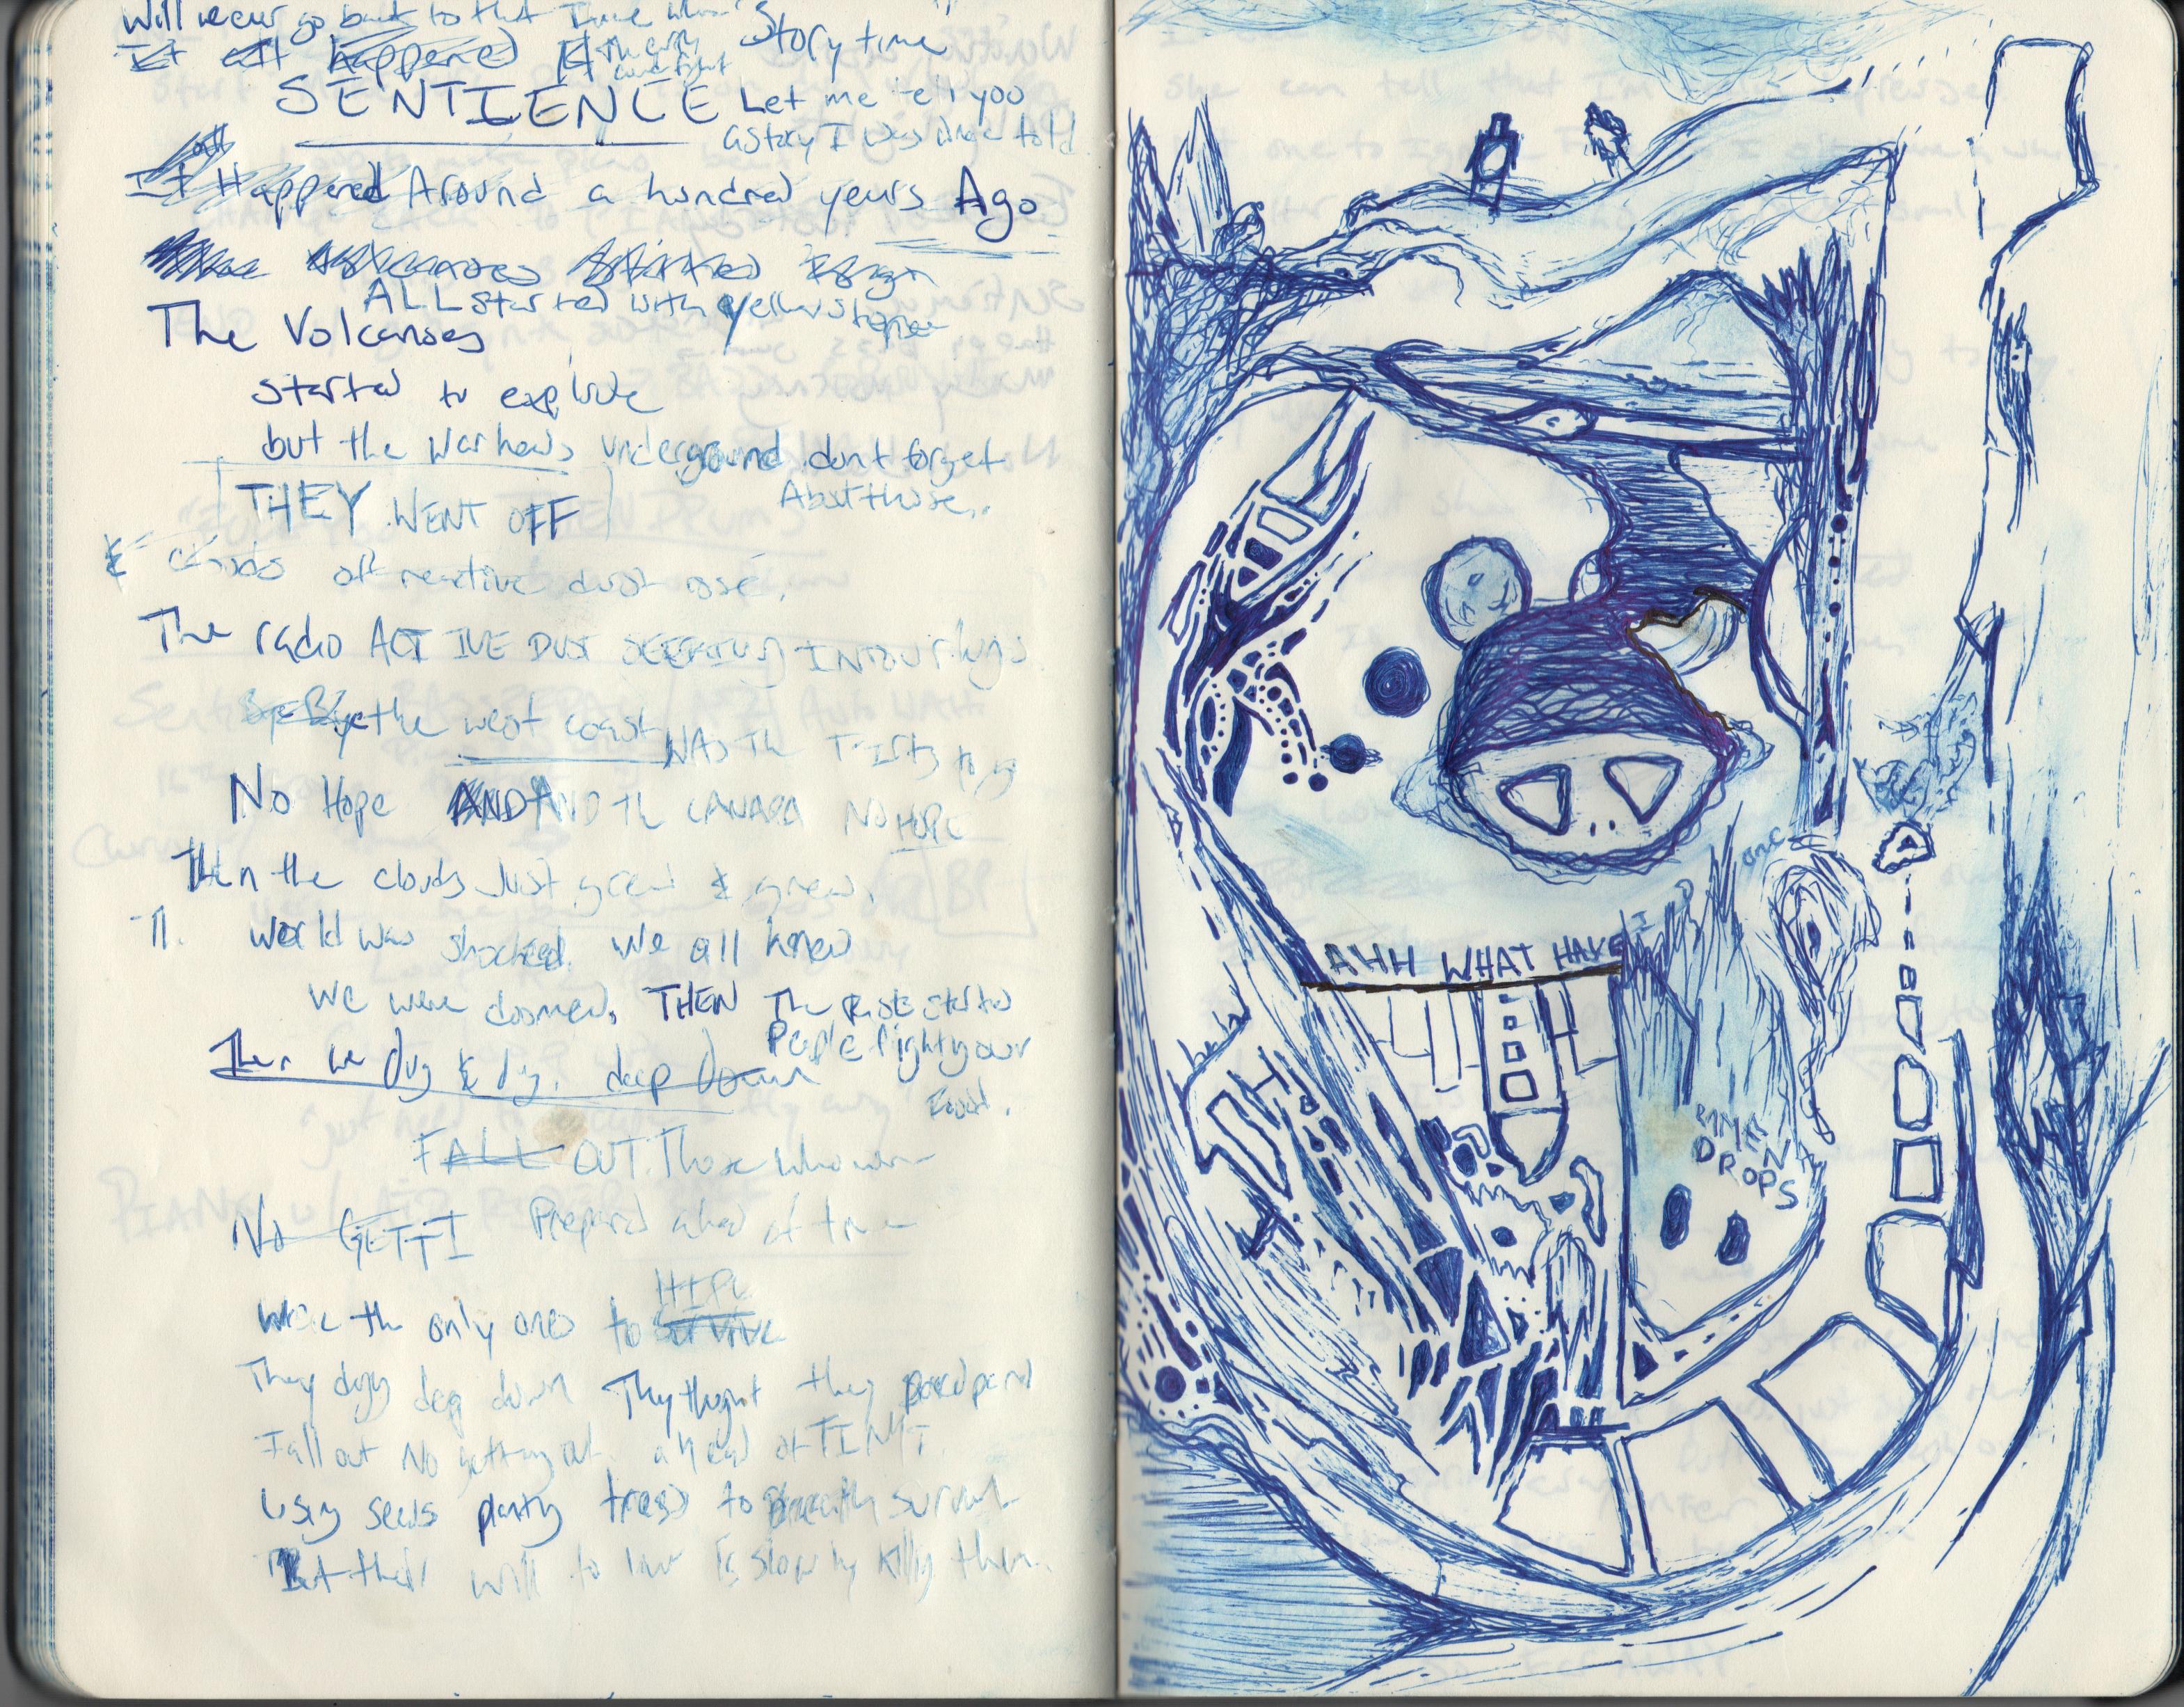 Will we ever go back to that time when
It all happened Story time
SENTIENCE Let me tell you
a story I was once told
It all Happened Around a hundred years Ago
ALL started with yellowstone
The Volcanoes
started to explode
but the warheads underground dont forget
About those..
THEY WENT OFF
& clouds of reactive dust rose.
The radio ACTIVE DUST SEEPING INTO our lungs
the west coast WAS The First to go
No Hope AND AND Th CANADA NO HOPE
Then the clouds Just grew & grew.
Th. World was shocked. We all knew
We were doomed. THEN The Riots started
People fight your
Then we dug & dig. deep down
FALL OUT Those who were
No GETTI Prepared ahead of time
HIPE
were the only ones to survive
They dug deep down They thought they
Fall out No getting out. ahead of TIME
Using seeds planting trees to breath
But their will to live Is slowly killing them.
AHH WHAT HAVE I
DONE
RAMEN
DROPS